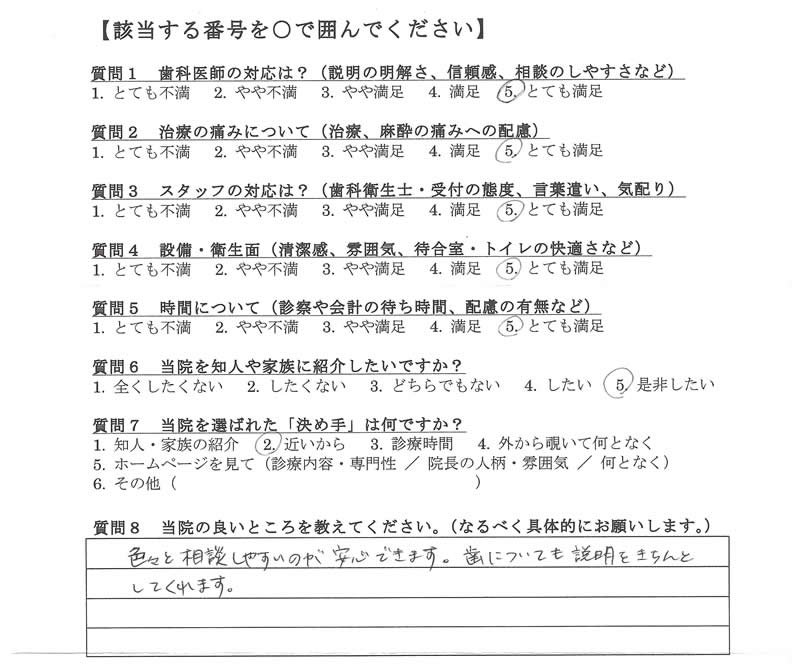 【該当する番号を〇で囲んでください】
質問１　歯科医師の対応は？（説明の明解さ、信頼感、相談のしやすさなど）
1. とても不満　2. やや不満　3. やや満足　4. 満足　5. とても満足
質問２　治療の痛みについて（治療、麻酔の痛みへの配慮）
1. とても不満　2. やや不満　3. やや満足　4. 満足　5. とても満足
質問３　スタッフの対応は？（歯科衛生士・受付の態度、言葉遣い、気配り）
1. とても不満　2. やや不満　3. やや満足　4. 満足　5. とても満足
質問４　設備・衛生面（清潔感、雰囲気、待合室・トイレの快適さなど）
1. とても不満　2. やや不満　3. やや満足　4. 満足　5. とても満足
質問５　時間について（診察や会計の待ち時間、配慮の有無など）
1. とても不満　2. やや不満　3. やや満足　4. 満足　5. とても満足
質問６　当院を知人や家族に紹介したいですか？
1. 全くしたくない　2. したくない　3. どちらでもない　4. したい　5. 是非したい
質問７　当院を選ばれた「決め手」は何ですか？
1. 知人・家族の紹介　2. 近いから　3. 診療時間　4. 外から覗いて何となく
5. ホームページを見て（診療内容・専門性 ／ 院長の人柄・雰囲気 ／ 何となく）
6. その他（　　　　　　　　　　　　　　　　　　　）
質問８　当院の良いところを教えてください。（なるべく具体的にお願いします。）
色々と相談しやすいのが安心できます。歯についても説明をきちんと
してくれます。